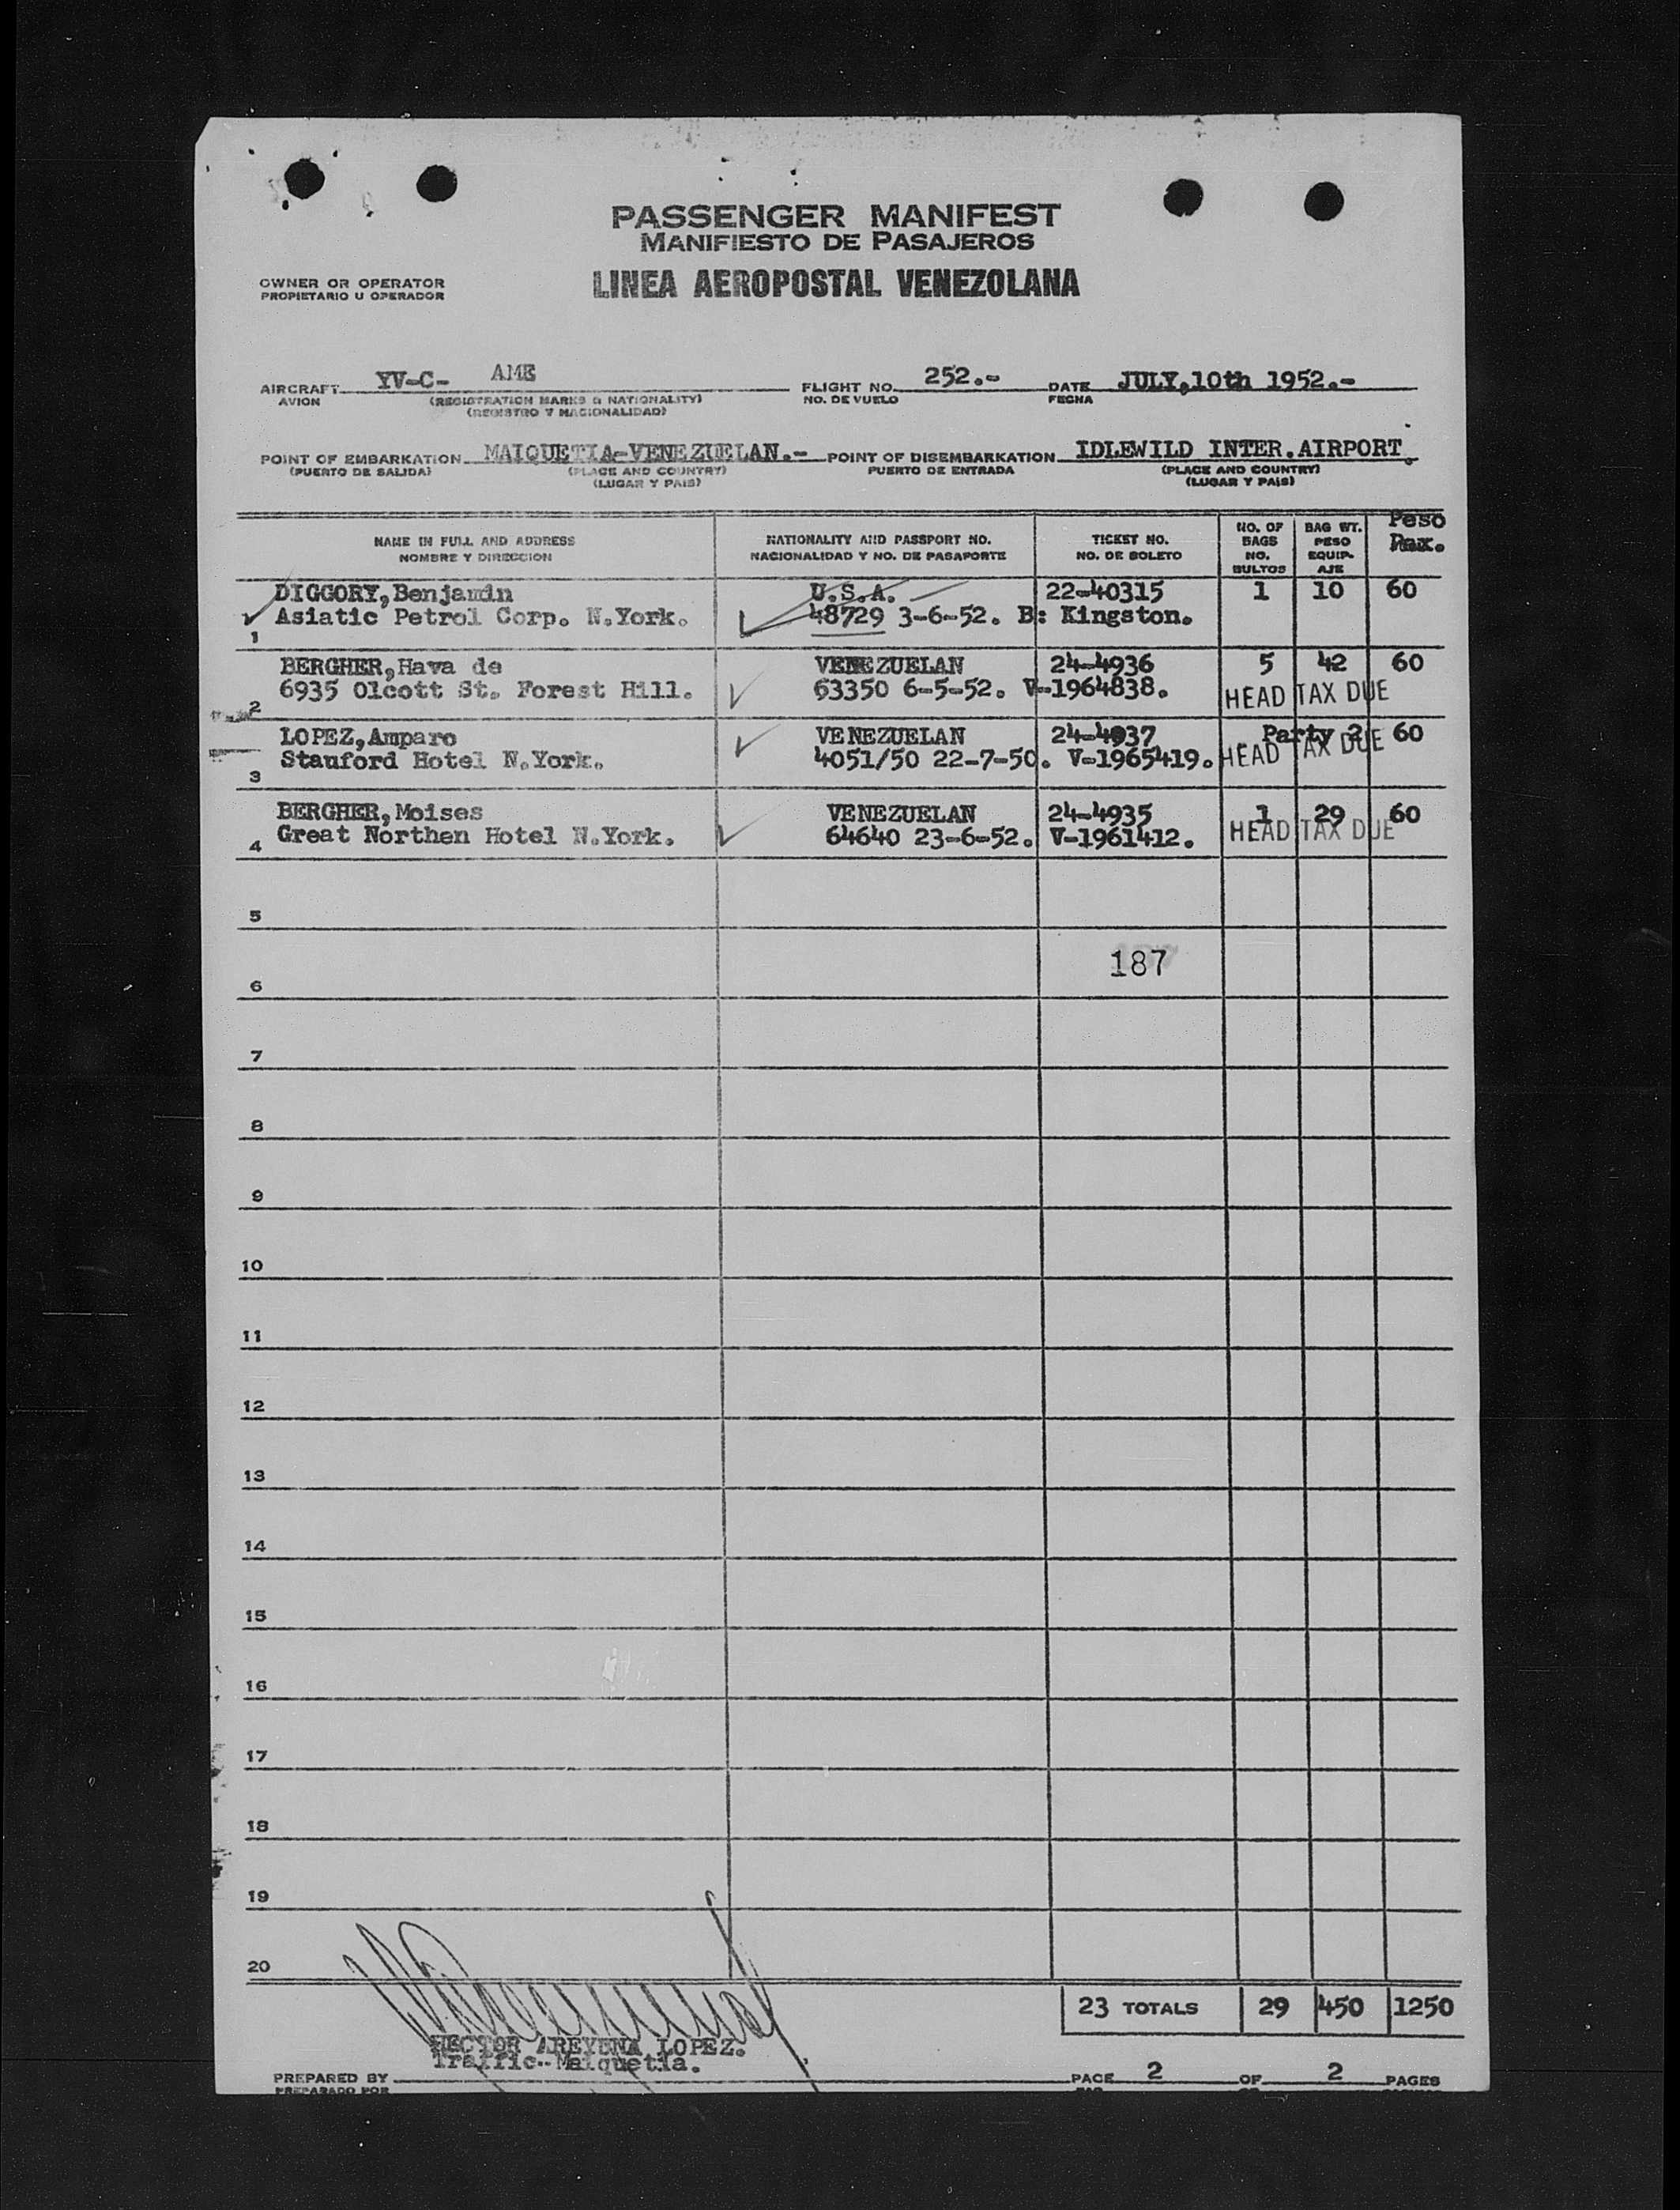 PASSENGER MANIFEST
MANIFIESTO DE PASAJEROS
OWNER OR OPERATOR
PROPIETARIO U OPERADOR
LINEA AEROPOSTAL VENEZOLANA
AIRCRAFT YV-C- AME FLIGHT NO. 252.- DATE JULY,10th 1952.-
AVION (REGISTRATION MARKS & NATIONALITY) NO. DE VUELO FECHA
(REGISTRO Y NACIONALIDAD)
POINT OF EMBARKATION MAIQUETIA-VENEZUELAN.- POINT OF DISEMBARKATION IDLEWILD INTER.AIRPORT.
(PUERTO DE SALIDA) (PLACE AND COUNTRY) PUERTO DE ENTRADA (PLACE AND COUNTRY)
(LUGAR Y PAIS) (LUGAR Y PAIS)
NAME IN FULL AND ADDRESS
NOMBRE Y DIRECCION
NATIONALITY AND PASSPORT NO.
NACIONALIDAD Y NO. DE PASAPORTE
TICKET NO.
NO. DE BOLETO
NO. OF
BAGS
NO.
BULTOS
BAG WT.
PESO
EQUIP-
AJE
Peso
Pax.
DIGGORY,Benjamin U.S.A. 22-40315 1 10 60
Asiatic Petrol Corp. N.York. 48729 3-6-52. B: Kingston.
1
BERGHER,Hava de VENEZUELAN 24-4936 5 42 60
6935 Olcott St. Forest Hill. 63350 6-5-52. V-1964838. HEAD TAX DUE
2
LOPEZ,Amparo VENEZUELAN 24-4937 Party 2 60
Stauford Hotel N.York. 4051/50 22-7-50. V-1965419. HEAD TAX DUE
3
BERGHER,Moises VENEZUELAN 24-4935 1 29 60
Great Northen Hotel N.York. 64640 23-6-52. V-1961412. HEAD TAX DUE
4
5
187
6
7
8
9
10
11
12
13
14
15
16
17
18
19
20
23 TOTALS 29 450 1250
HECTOR AREYUNA LOPEZ.
Traffic-Maiquetia.
PREPARED BY PAGE 2 OF 2 PAGES
PREPARADO POR